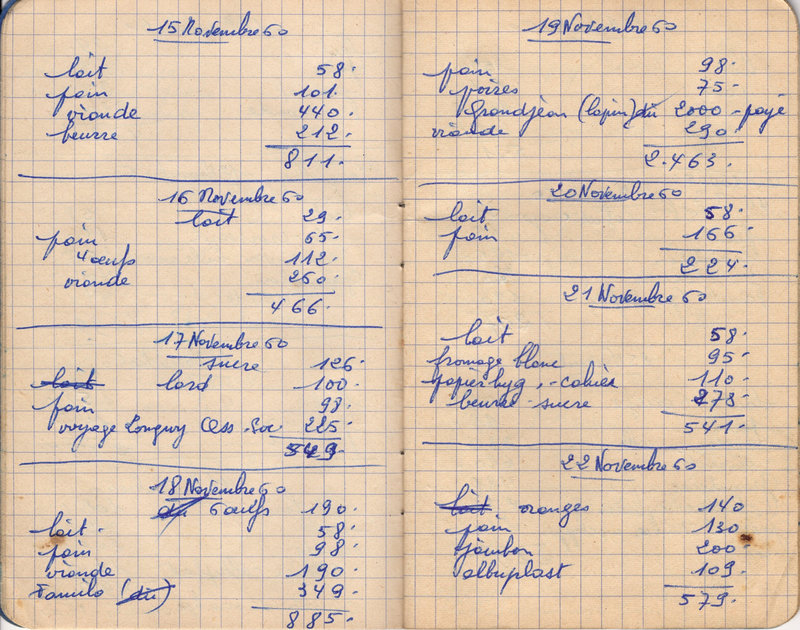 15 Novembre 60
lait 58.
pain 101.
viande 440.
beurre 212.
811.
16 Novembre 60
lait 29.
pain 65.
4 œufs 112.
viande 260.
466.
17 Novembre 60
sucre 126.
lait lard 100.
pain 98.
voyage Longwy Ass. Soc. 225.
549.
18 Novembre 60
dû 6 œufs 190.
lait. 58.
pain 98.
viande 190.
Familo (dû) 349.
885.
19 Novembre 60
pain 98.
poires 75.
Grandjean (lapin) dû 2000 - payé
viande 290.
2.463.
20 Novembre 60
lait 58.
pain 166.
224.
21 Novembre 60
lait 58.
fromage blanc 95.
papier hyg. - cahier 110.
beurre - sucre 278.
541.
22 Novembre 60
lait oranges 140
pain 130
jambon 200.
albuplast 109.
579.